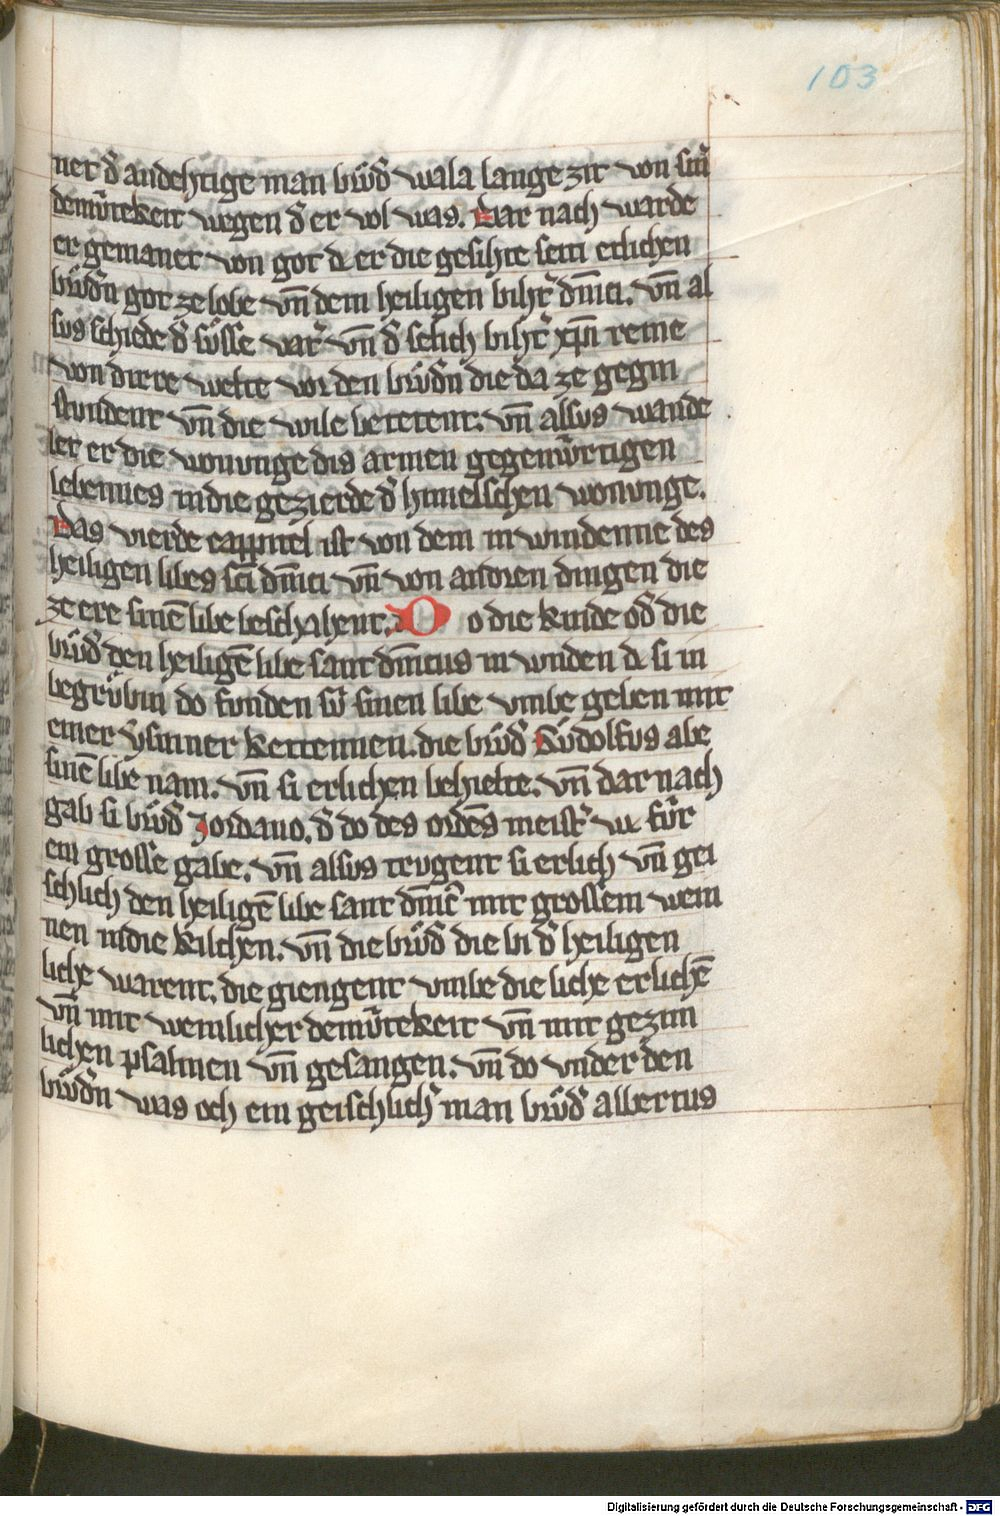 103
ner d̄ andehtige man brůd̄ wala lange zit von sin̄
demůtekeit wegen d̄ er vol was. Dar nach warde
er gemanet von got dc er die gesihte seiti etlichen
brůdn̄ got ze lobe vn̄ dem heiligen bihtˀ dn̄ici. vn̄ al
sus schiede d̄ sůsse vatˀ vn̄ d̄ selich bihtˀ xp̄n reine
von dirre welte vor den brůdn̄ die da ze gegin
stundent vn̄ die wile bettetent. vn̄ alsus wande
let er die wonunge dis armen gegenwrtigen
lebennes in die gezierde d̄ himelschen wonunge.
Das vierde cappitel ist von dem in windenne des
heiligen libes sc̄i dn̄ici vn̄ von andren dingen die
ze ere sinē libe beschahent. Do die kinde od̄ die
brůd̄ den heiligē libe sant dn̄icus in wnden dc si in
begrůbin do funden sv̓ sinen libe vmbe geben mit
einer ysinner kettennen. die brůd̄ Růdolfus abe
sinē libe nam. vn̄ si erlichen behielte. vn̄ dar nach
gab si brůd̄ Jordano. d̄ do des ordēs meistˀ wc fůr
ein grosse gabe. vn̄ alsus trugent si erlich vn̄ gei
schlich den heiligē libe sant dn̄icˀ mit grossem wein
nen in die kilchen. vn̄ die brůd̄ die bi d̄ heiligen
liche warent. die giengent vmbe die liche erlichē
vn̄ mit weinlicher demůtekeit vn̄ mit gezim
lichen psalmen vn̄ gesangen. vn̄ do vnder den
brůdn̄ was och ein geischlichˀ man brůd̄ albertus
Digitalisierung gefördert durch die Deutsche Forschungsgemeinschaft - DFG